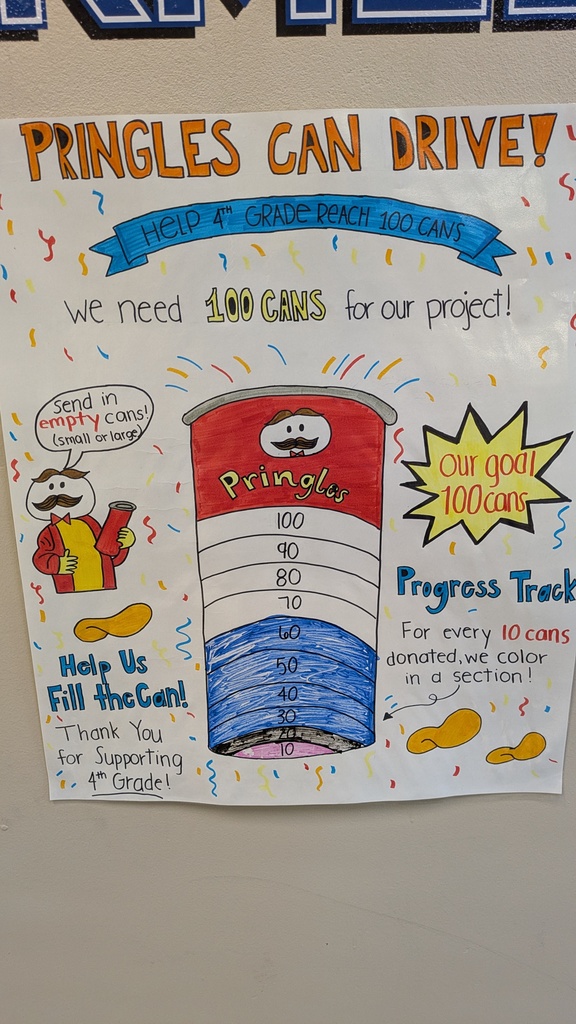 PRINGLES CAN DRIVE!
HELP 4TH GRADE REACH 100 CANS
We need 100 CANS for our project!
Send in
empty cans!
(small or large)
Pringles
100
90
80
70
60
50
40
30
20
10
Our goal
100 cans
Progress Track
For every 10 cans
donated, we color
in a section!
Help Us
Fill the Can!
Thank You
for Supporting
4th Grade!